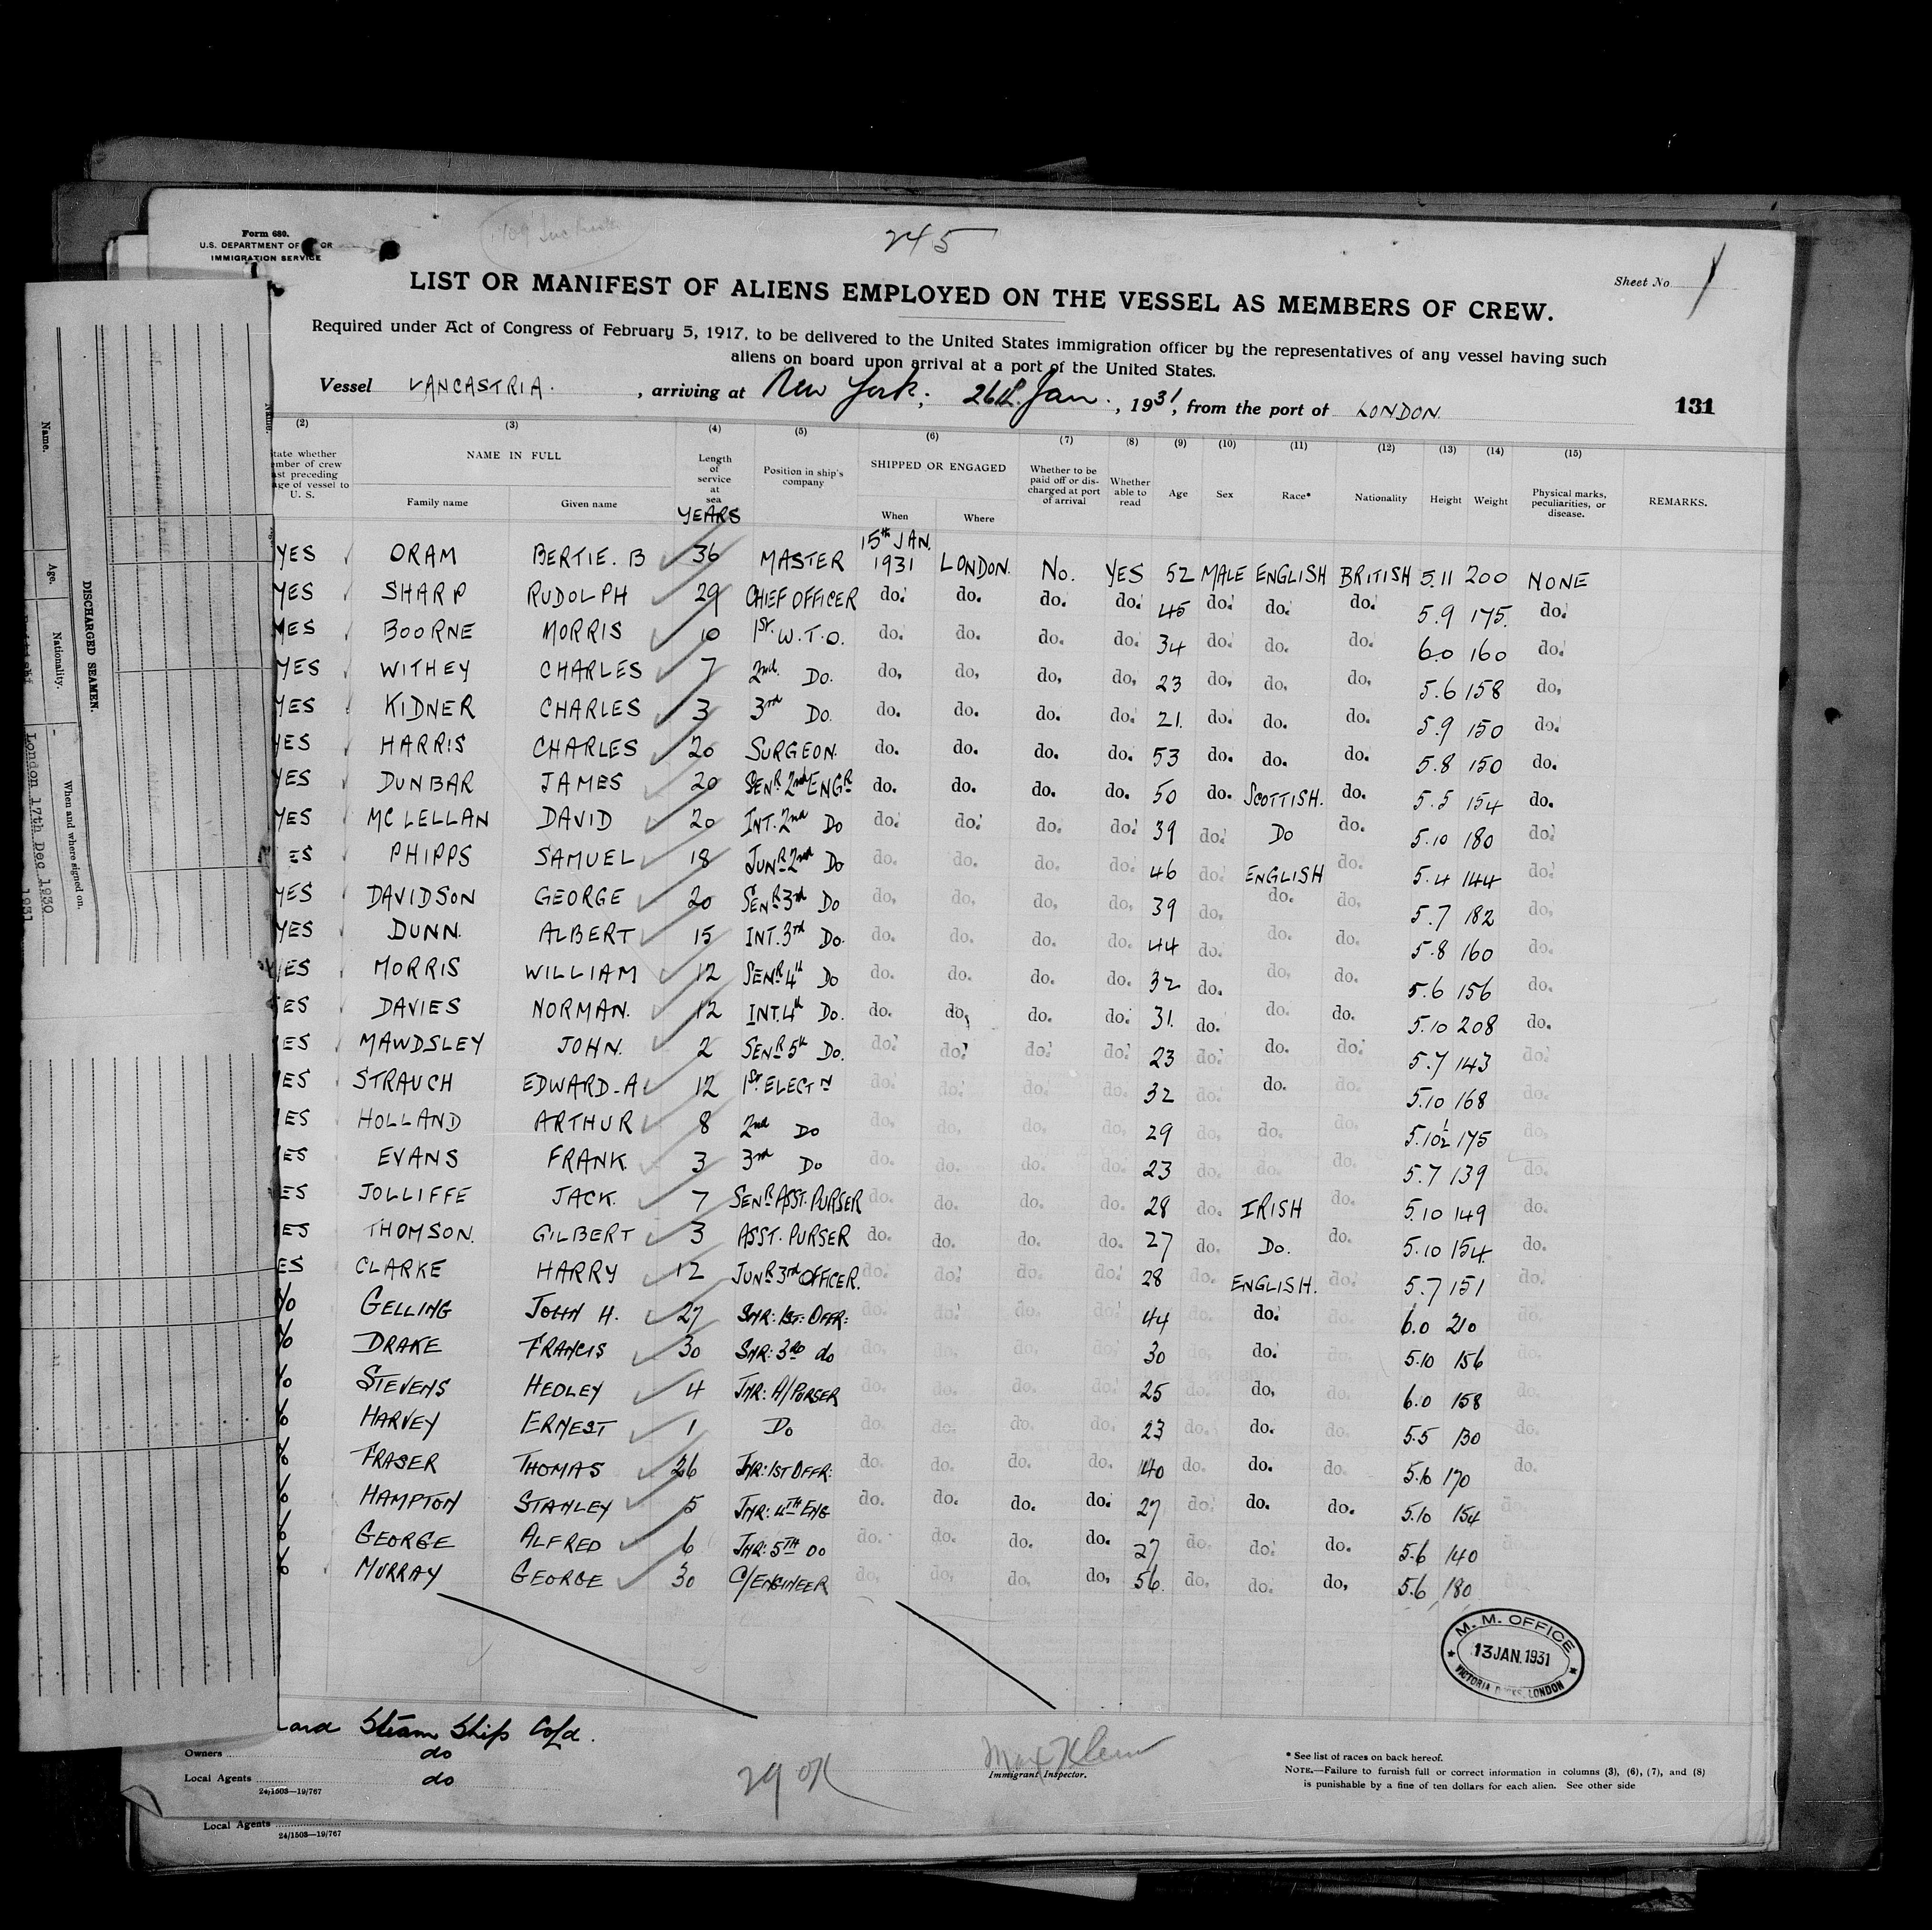 245
Form 680.
U.S. DEPARTMENT OF OR
IMMIGRATION SERVICE
Sheet No 1
LIST OR MANIFEST OF ALIENS EMPLOYED ON THE VESSEL AS MEMBERS OF CREW.
Required under Act of Congress of February 5, 1917, to be delivered to the United States immigration officer by the representatives of any vessel having such
aliens on board upon arrival at a port of the United States.
Vessel LANCASTRIA. , arriving at New York; 26th Jan. , 1931, from the port of LONDON.
131
(2) (3) (4) (5) (6) (7) (8) (9) (10) (11) (12) (13) (14) (15)
tate whether
mber of crew
ast preceding
age of vessel to
U. S.
NAME IN FULL
Family name Given name
Length
of
service
at
sea
YEARS
Position in ship's
company
SHIPPED OR ENGAGED
When Where
Whether to be
paid off or dis-
charged at port
of arrival
Whether
able to
read
Age Sex Race* Nationality Height Weight
Physical marks,
peculiarities, or
disease.
REMARKS.
15th JAN.
YES ORAM BERTIE. B 36 MASTER 1931 LONDON. No. YES 52 MALE ENGLISH BRITISH 5.11 200 NONE
YES SHARP RUDOLPH 29 CHIEF OFFICER do. do. do. do. 45 do. do. do. 5.9 175. do.
YES BOORNE MORRIS 10 1st. W.T.O. do. do. do. do. 34 do. do. do. 6.0 160 do.
YES WITHEY CHARLES 7 2nd. Do. do. do. do. do. 23 do. do. do. 5.6 158 do.
YES KIDNER CHARLES 3 3rd Do. do. do. do. do. 21. do. do. do. 5.9 150 do.
YES HARRIS CHARLES 20 SURGEON. do. do. do. do. 53 do. do. do. 5.8 150 do.
YES DUNBAR JAMES 20 SENR 2nd ENGR do. do. do. do. 50 do. SCOTTISH. do. 5.5 154 do.
YES MC LELLAN DAVID 20 INT. 2nd Do do. do. do. do. 39 do. Do do. 5.10 180 do.
ES PHIPPS SAMUEL 18 JUNR 2nd Do do. do. do. do. 46 do. ENGLISH do. 5.4 144 do.
YES DAVIDSON GEORGE 20 SENR 3rd Do do. do. do. do. 39 do. do. do. 5.7 182 do.
YES DUNN. ALBERT 15 INT. 3rd Do. do. do. do. do. 44 do. do. do. 5.8 160 do.
YES MORRIS WILLIAM 12 SENR 4th Do do. do. do. do. 32 do. do. do. 5.6 156 do.
ES DAVIES NORMAN. 12 INT. 4th Do. do. do. do. do. 31. do. do. do. 5.10 208 do.
ES MAWDSLEY JOHN. 2 SENR 5th Do. do. do. do. do. 23 do. do. do. 5.7 143 do.
ES STRAUCH EDWARD-A 12 1st. ELECTN do. do. do. do. 32 do. do. do. 5.10 168 do.
ES HOLLAND ARTHUR 8 2nd Do do. do. do. do. 29 do. do. do. 5.10½ 175 do.
ES EVANS FRANK. 3 3rd Do do. do. do. do. 23 do. do. do. 5.7 139 do.
ES JOLLIFFE JACK. 7 SENR ASST. PURSER do. do. do. do. 28 do. IRISH do. 5.10 149 do.
ES THOMSON. GILBERT 3 ASST. PURSER do. do. do. do. 27 do. Do. do. 5.10 154. do.
ES CLARKE HARRY 12 JUNR 3rd OFFICER. do. do. do. do. 28 do. ENGLISH. do. 5.7 151 do.
GELLING JOHN H. 27 SNR: 1ST: OFFR: do. do. do. do. 44 do. do. do. 6.0 210 do.
DRAKE FRANCIS 30 SNR: 3RD do do. do. do. do. 30 do. do. do. 5.10 156 do.
STEVENS HEDLEY 4 JNR: A/PURSER do. do. do. do. 25 do. do. do. 6.0 158 do.
HARVEY ERNEST 1 Do do. do. do. do. 23 do. do. do. 5.5 130 do.
FRASER THOMAS 26 JNR: 1ST OFFR: do. do. do. do. 40 do. do. do. 5.6 170 do.
HAMPTON STANLEY 5 JNR: 4TH ENG do. do. do. do. 27 do. do. do. 5.10 154
GEORGE ALFRED 6 JNR: 5TH Do do. do. do. do. 27 do. do. do. 5.6 140
MURRAY GEORGE 30 C/ENGINEER do. do. do. do. 56. do. do. do. 5.6 180
M. M. OFFICE
13 JAN. 1931
VICTORIA DOCKS, LONDON
ard Steam Ship Co Ld.
Owners do
Local Agents do
24/1503—19/767
29 OK
Max Klein
Immigrant Inspector.
* See list of races on back hereof.
NOTE.—Failure to furnish full or correct information in columns (3), (6), (7), and (8)
is punishable by a fine of ten dollars for each alien. See other side
Local Agents
24/1503—19/767
DISCHARGED SEAMEN.
Name. Age. Nationality. When and where signed on.
London 17th Dec 1930
1931